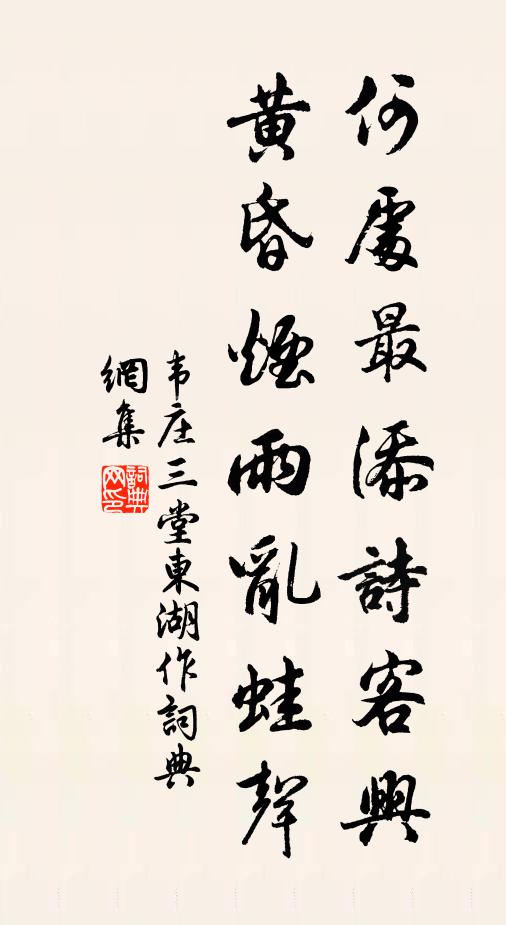 何處最添詩客興
黃昏煙雨亂蛙聲
韦庄三堂東湖作詞典
網集
詞典網印